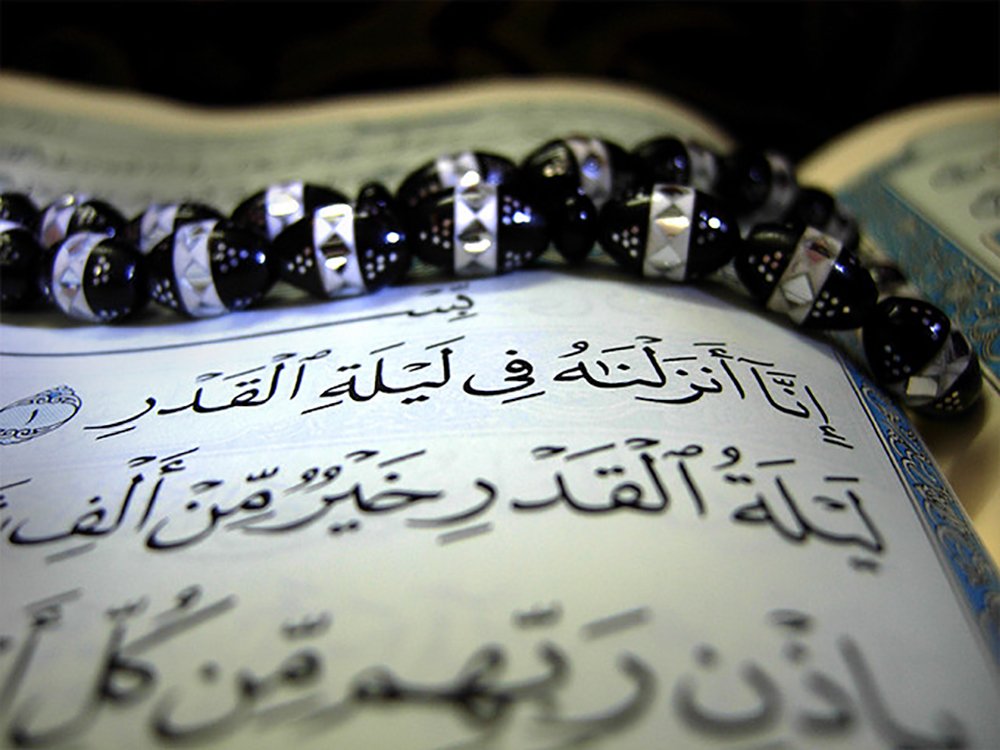 بِسْ
إِنَّآ أَنزَلْنَـٰهُ فِى لَيْلَةِ ٱلْقَدْرِ ١
لَيْلَةُ ٱلْقَدْرِ خَيْرٌ مِّنْ أَلْفِ
بِإِذْنِ رَبِّهِم مِّن كُلِّ